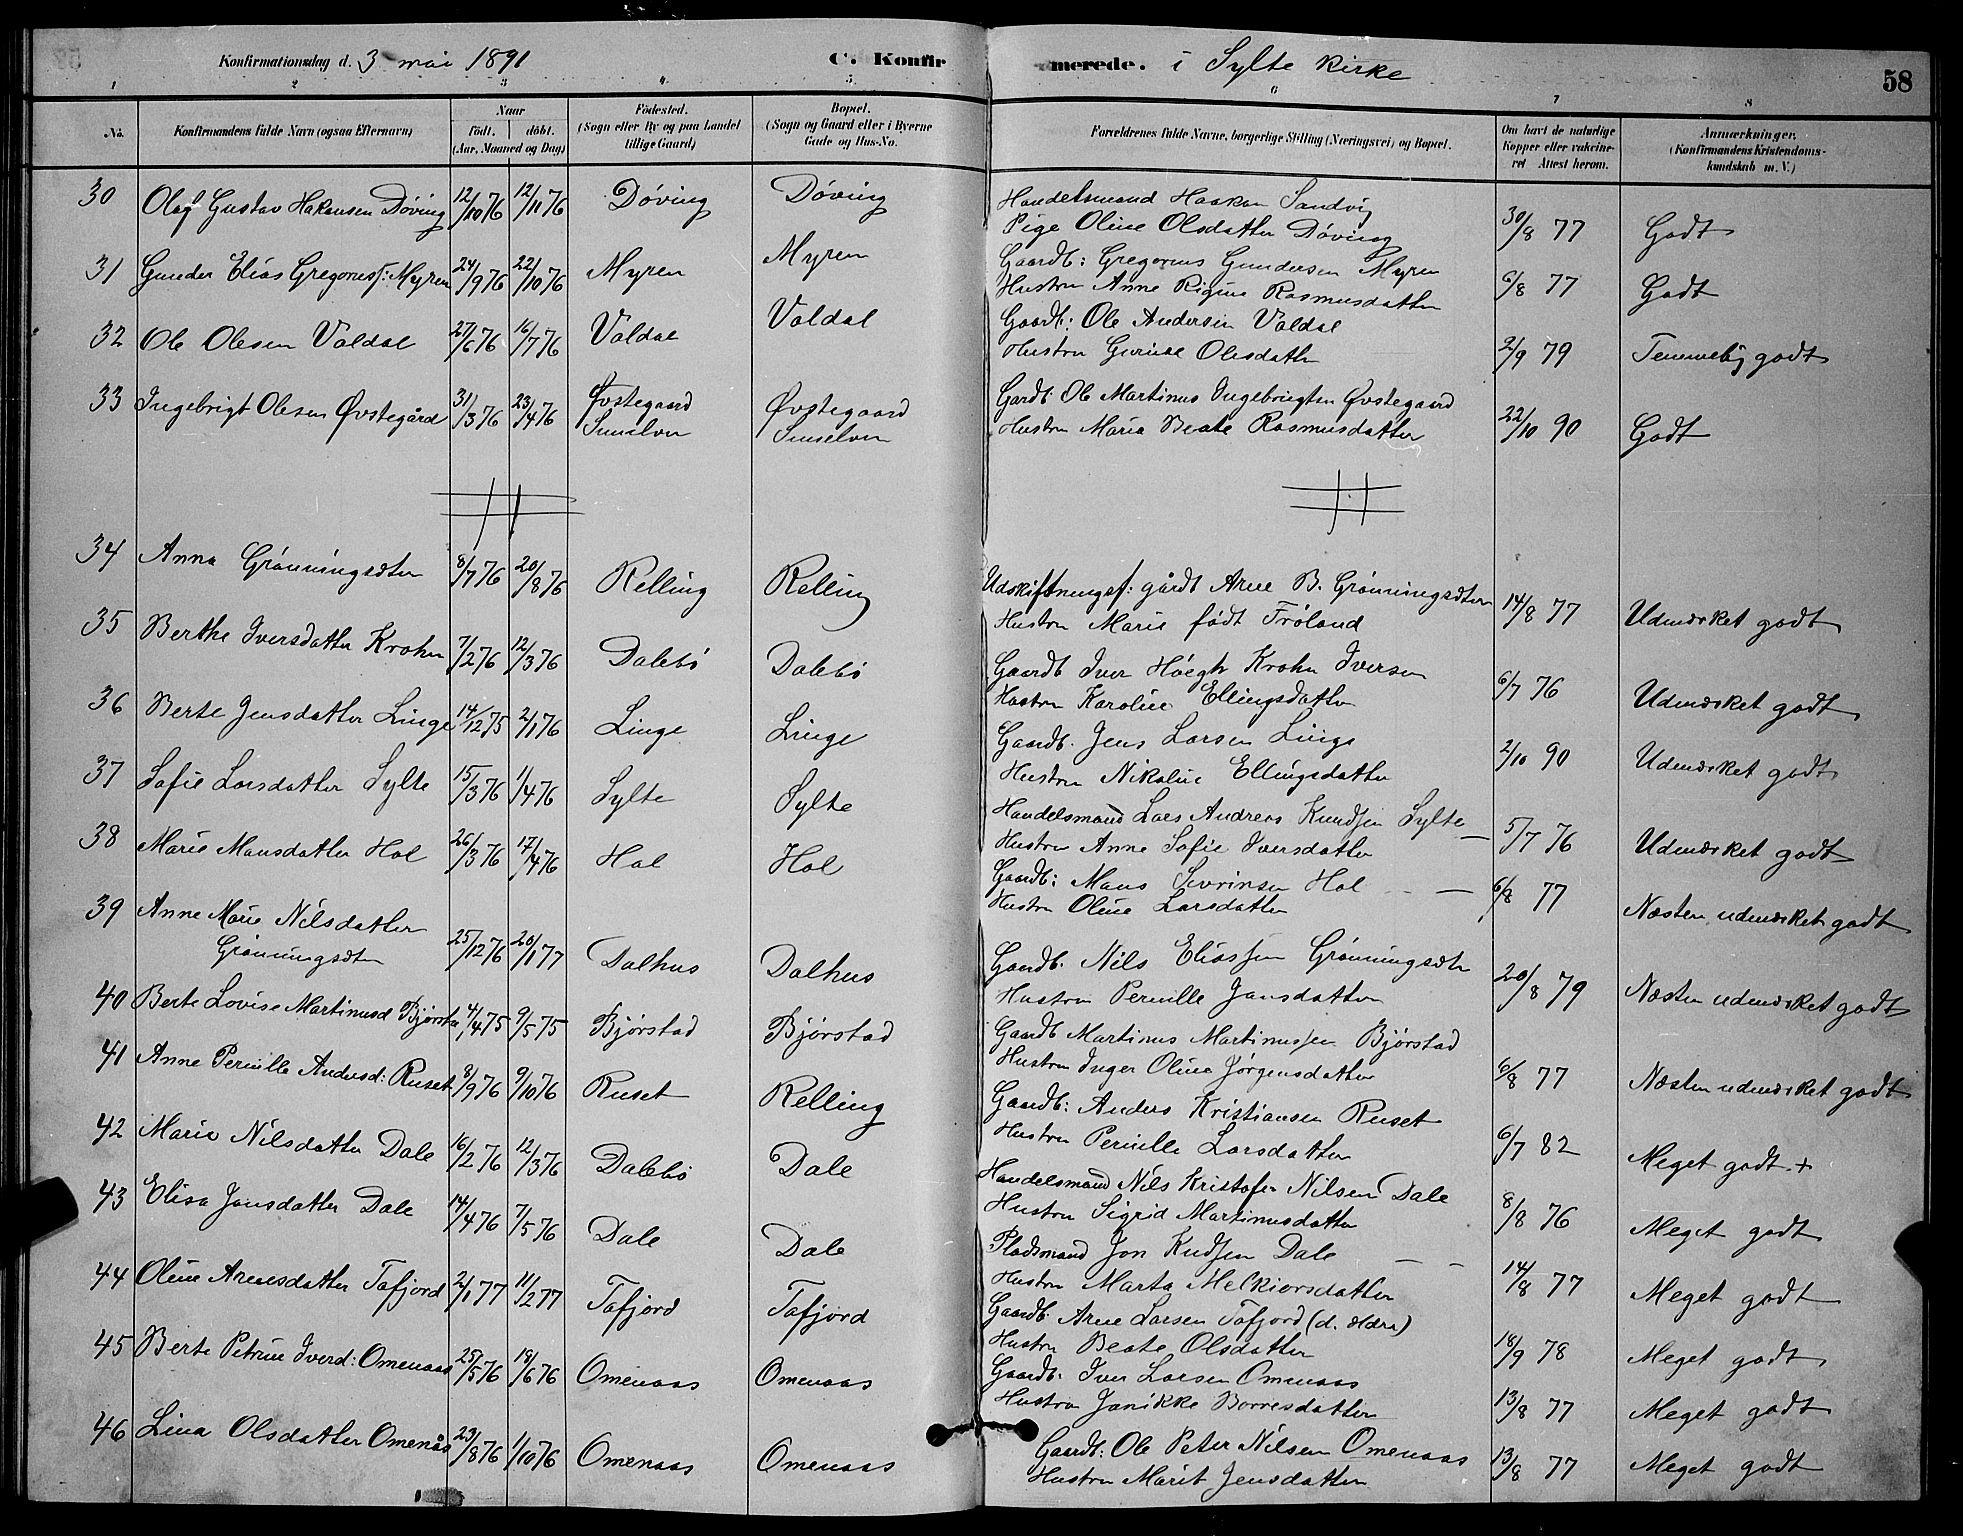 Konfirmationsdag d. 3 mai 1891 C. Konfirmerede. i Sylte kirke 58
1 2 3 4 5 6 7 8
No. Konfirmandens fulde Navn (ogsaa Efternavn) Naar født. døbt. (Aar, Maaned og Dag) Fødested. (Sogn eller By og paa Landet tillige Gaard) Bopæl. (Sogn og Gaard eller i Byerne Gade og Hus-No. Forældrenes fulde Navne, borgerlige Stilling (Næringsvei) og Bopæl. Om havt de naturlige Kopper eller vakcineret Attest herom. Anmærkninger. (Konfirmandens Kristendomskundskab m. V.)
30 Olaf Gustav Hakonsen Döving 12/10 76 12/11 76 Döving Döving Handelsmand Haakon Sandvig
Pige Oline Olsdatter Döving 30/8 77 Godt
31 Gunder Elias Gregoriusf: Myren 24/9 76 22/10 76 Myren Myren Gaardb: Gregorius Gundersen Myren
Hustru Anne Rigine Rasmusdatter 6/8 77 Godt
32 Ole Olesen Valdal 27/6 76 16/7 76 Valdal Valdal Gaardb: Ole Andersen Valdal
Hustru Gurine Olesdatter 2/9 79 Temmelig godt
33 Ingebrigt Olesen Øvstegård 31/3 76 23/4 76 Øvstegaard Sunelven Øvstegaard Sunelven Gardb: Ole Martinus Ingebrigtsen Øvstegaard
Hustru Maria Beate Rasmusdatter 22/10 90 Godt
34 Anna Grönningsæter 8/7 76 20/8 76 Relling Relling Udskiftningsf: gårdb Arne B. Grönningsæter
Hustru Marie født Fröland 14/8 77 Udmærket godt
35 Berthe Iversdatter Krohn 7/2 76 12/3 76 Dalebö Dalebö Gaardb Iver Höegh Krohn Iversen
Hustru Karoline Ellingsdatter 6/7 76 Udmærket godt
36 Berte Jensdatter Linge 14/12 75 2/1 76 Linge Linge Gaardb. Jens Larsen Linge
Hustru Nikoline Ellingsdatter 2/10 90 Udmærket godt
37 Sofie Larsdatter Sylte 15/3 76 1/4 76 Sylte Sylte Handelsmand Lars Andreas Knudsen Sylte
Hustru Anne Sofie Iversdatter 5/7 76 Udmærket godt
38 Marie Mansdatter Hol 26/3 76 17/4 76 Hol Hol Gaardb: Mans Sivrinsen Hol
Hustru Oline Larsdatter 6/8 77 Næsten udmærket godt
39 Anne Marie Nilsdatter
Grönningsæter 25/12 76 20/1 77 Dalhus Dalhus Gaardb. Nils Eliassen Grönningsæter
Hustru Pernille Jonsdatter 20/8 79 Næsten udmærket godt
40 Berte Lovise Martinusd Bjørsta 4/4 75 9/5 75 Bjørstad Bjørstad Gaardb Martinus Martinussen Bjørstad
Hustru Inger Oline Jørgensdatter 6/8 77 Næsten udmærket godt
41 Anne Pernille Andersd: Ruset 8/9 76 9/10 76 Ruset Relling Gaardb: Anders Kristiansen Ruset
Hustru Pernille Larsdatter 6/7 82 Meget godt +
42 Marie Nilsdatter Dale 16/2 76 12/3 76 Dalebö Dale Handelsmand Nils Kristofer Nilsen Dale
Hustru Sigrid Martinusdatter 8/8 76 Meget godt
43 Elisa Jonsdatter Dale 14/4 76 7/5 76 Dale Dale Pladsmand Jon Knudsen Dale
Hustru Marta Melkiorsdatter 14/8 77 Meget godt
44 Oline Arnesdatter Tafjord 2/1 77 11/2 77 Tafjord Tafjord Gaardb: Arne Larsen Tafjord (d. ældre)
Hustru Beate Olsdatter 18/9 78 Meget godt
45 Berte Petrine Iverd: Omenaas 25/5 76 18/6 76 Omenaas Omenaas Gaardb. Iver Larsen Omenaas
Hustru Janikke Borresdatter 13/8 77 Meget godt
46 Lina Olsdatter Omenås 23/8 76 1/10 76 Omenaas Omenaas Gaardb: Ole Peter Nilsen Omenaas
Hustru Marit Jensdatter 13/8 77 Meget godt